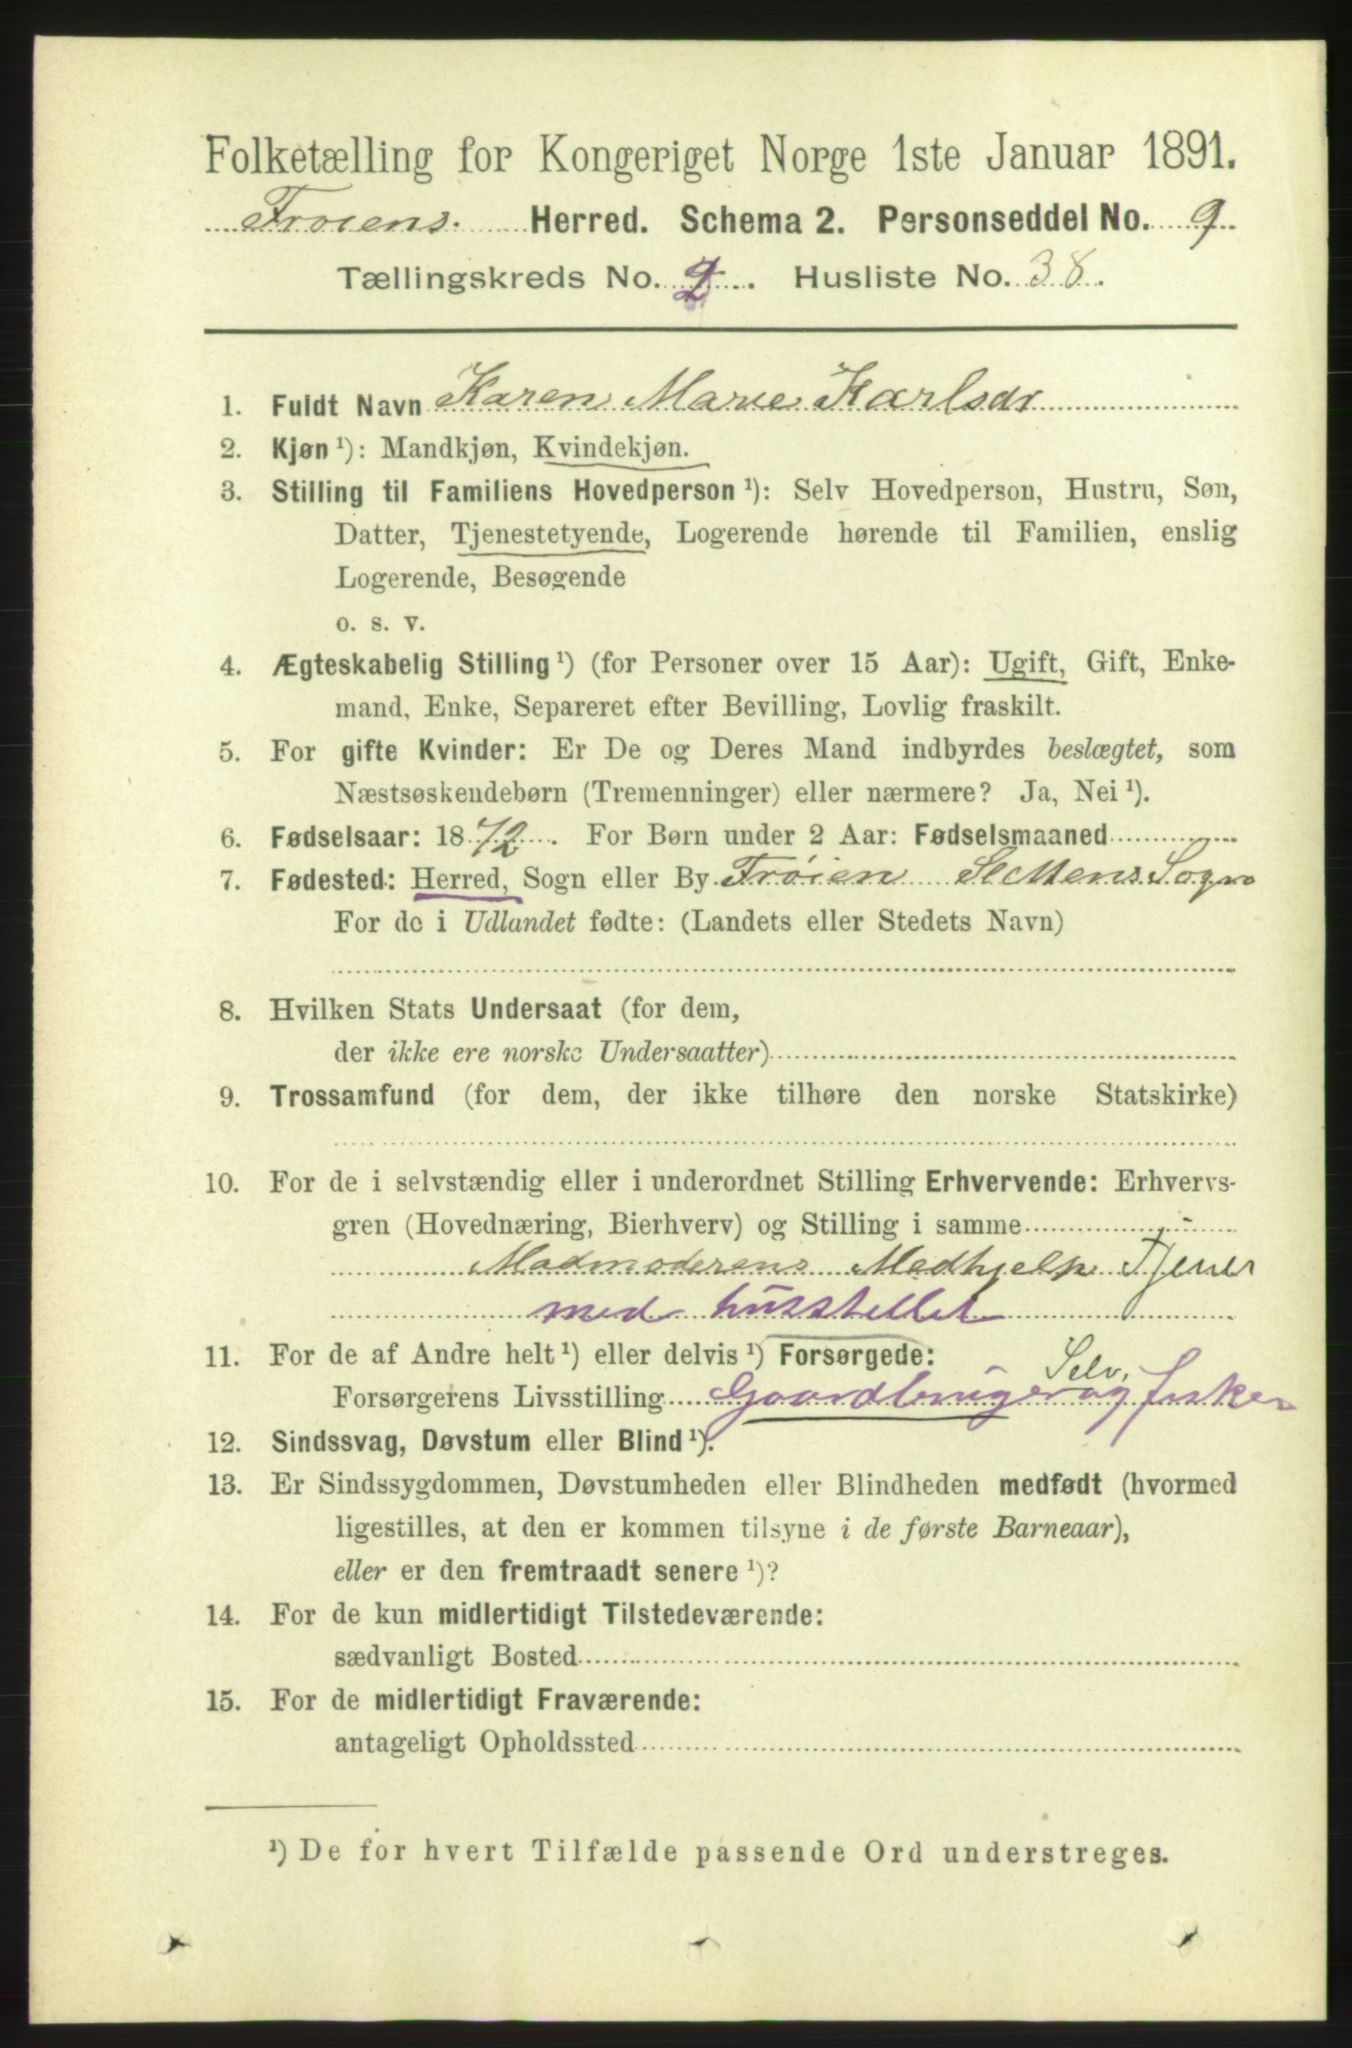 Folketælling for Kongeriget Norge 1ste Januar 1891.
Frøiens Herred. Schema 2. Personseddel No. 9.
Tællingskreds No. 2. Husliste No. 38.
1. Fuldt Navn Karen Marie Karlsdr
2. Kjøn ¹): Mandkjøn, Kvindekjøn.
3. Stilling til Familiens Hovedperson ¹): Selv Hovedperson, Hustru, Søn,
Datter, Tjenestetyende, Logerende hørende til Familien, enslig
Logerende, Besøgende
o. s. v.
4. Ægteskabelig Stilling ¹) (for Personer over 15 Aar): Ugift, Gift, Enke-
mand, Enke, Separeret efter Bevilling, Lovlig fraskilt.
5. For gifte Kvinder: Er De og Deres Mand indbyrdes beslægtet, som
Næstsøskendebørn (Tremenninger) eller nærmere? Ja, Nei ¹).
6. Fødselsaar: 1872. For Børn under 2 Aar: Fødselsmaaned
7. Fødested: Herred, Sogn eller By Frøien Slettens Sogn
For de i Udlandet fødte: (Landets eller Stedets Navn)
8. Hvilken Stats Undersaat (for dem,
der ikke ere norske Undersaatter)
9. Trossamfund (for dem, der ikke tilhøre den norske Statskirke)
10. For de i selvstændig eller i underordnet Stilling Erhvervende: Erhvervs-
gren (Hovednæring, Bierhverv) og Stilling i samme
Madmoderens Medhjelp Tjener
med husstellet
11. For de af Andre helt ¹) eller delvis ¹) Forsørgede:
Selv,
Forsørgerens Livsstilling Gaardbruger og fisker
12. Sindssvag, Døvstum eller Blind ¹).
13. Er Sindssygdommen, Døvstumheden eller Blindheden medfødt (hvormed
ligestilles, at den er kommen tilsyne i de første Barneaar),
eller er den fremtraadt senere ¹)?
14. For de kun midlertidigt Tilstedeværende:
sædvanligt Bosted
15. For de midlertidigt Fraværende:
antageligt Opholdssted
¹) De for hvert Tilfælde passende Ord understreges.